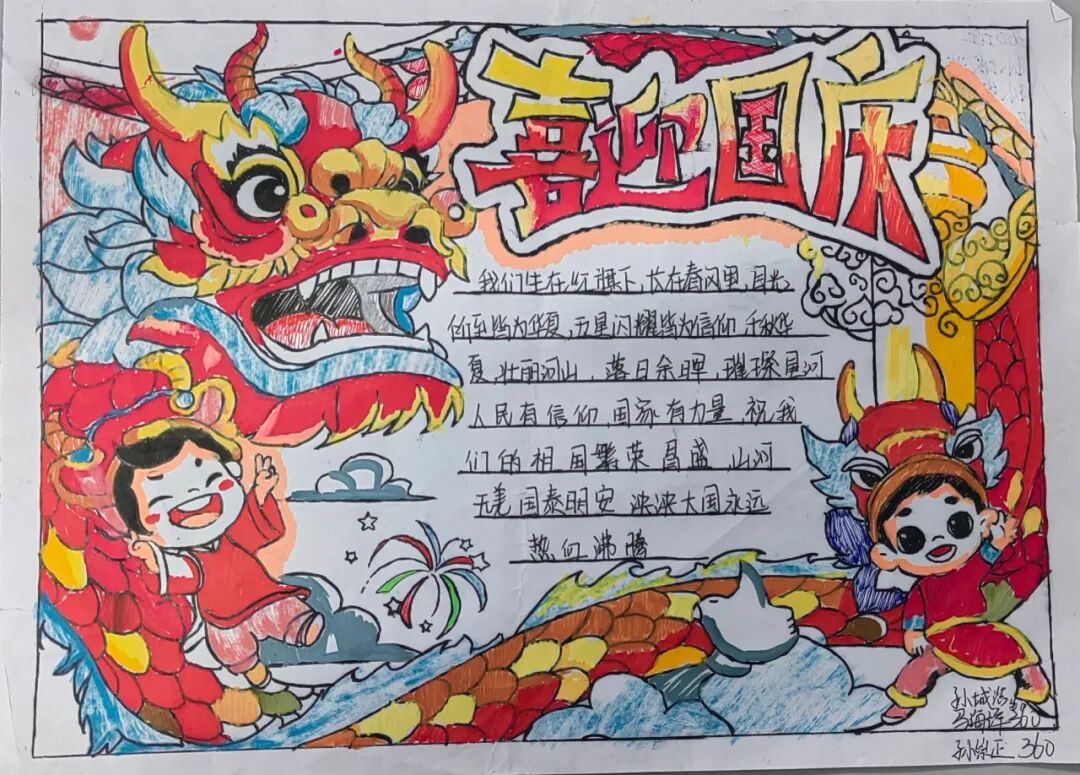 喜迎国庆
我们生在红旗下，长在春风里，目光
所至皆为华夏，五星闪耀皆为信仰 千秋华
夏，壮丽河山 落日余晖，璀璨星河
人民有信仰，国家有力量 祝我
们的祖国繁荣昌盛，山河
无恙 国泰明安 泱泱大国永远
热血沸腾
孙城
360
孙 正 360